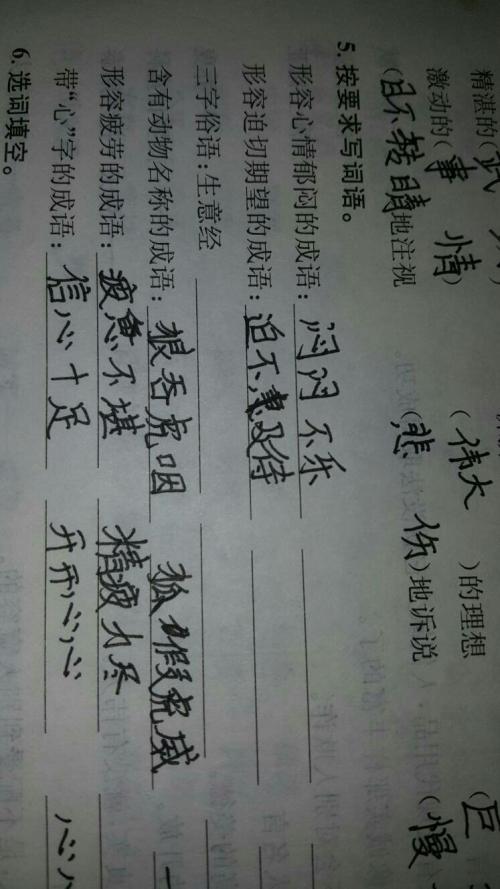 精湛的(
激动的(事情) (伟大)的理想 (巨
(目不转睛)地注视 (悲伤)地诉说 (慢
5. 按要求写词语。
形容心情郁闷的成语:闷闷不乐
形容迫切期望的成语:迫不及待
三字俗语:生意经
含有动物名称的成语:狼吞虎咽 狐假虎威
形容疲劳的成语:疲惫不堪 精疲力尽
带“心”字的成语:信心十足 开开心心 心
6. 选词填空。